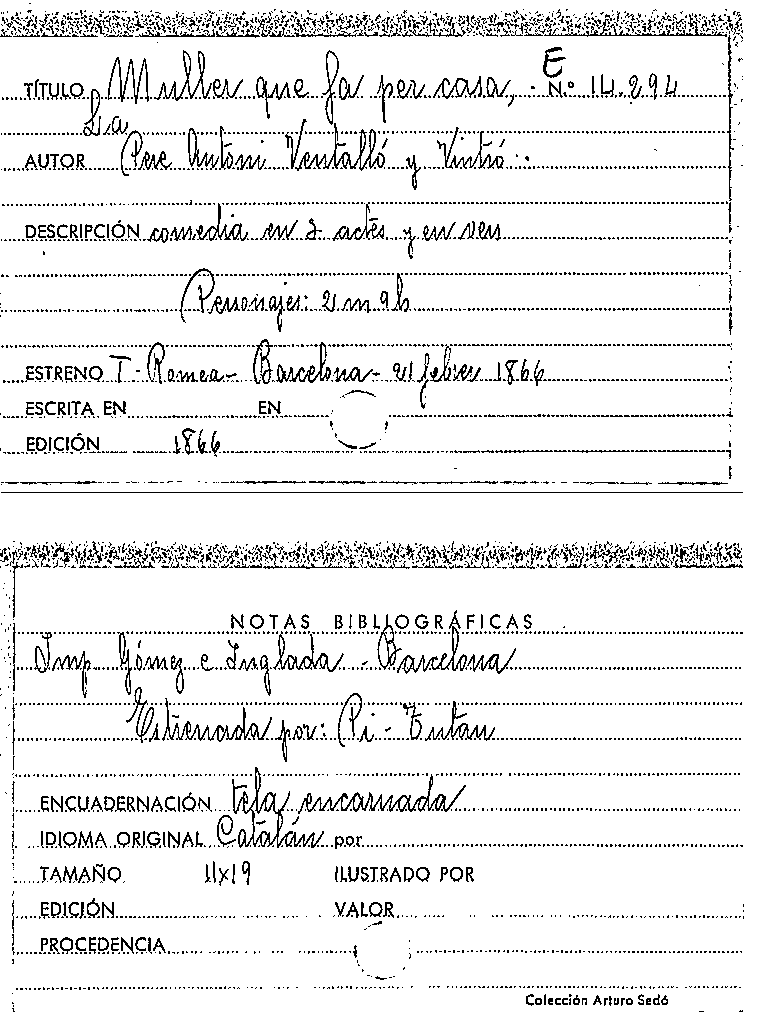 E
TÍTULO Muller que fa per casa, - N.º 14.294
La
AUTOR Pere Antoni Ventalló y Vintró..
DESCRIPCIÓN comedia en 2 actes y en vers
Personajes: 2 m 9 h
ESTRENO T. Romea - Barcelona - 21 febrer 1866
ESCRITA EN EN
EDICIÓN 1866
NOTAS BIBLIOGRÁFICAS
Imp. Gómez e Inglada - Barcelona
Estrenada por: Pi -
ENCUADERNACIÓN tela encarnada
IDIOMA ORIGINAL Catalán por
TAMAÑO 11x19 ILUSTRADO POR
EDICIÓN VALOR
PROCEDENCIA
Colección Arturo Sedó